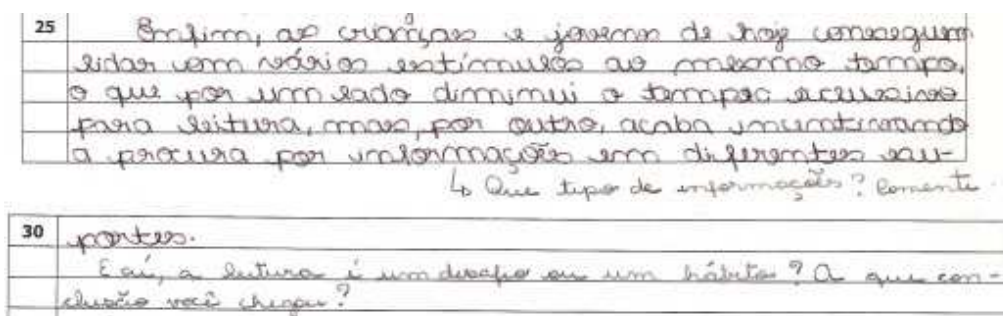 25 Enfim, as crianças e jovens de hoje conseguem
lidar com vários estímulos ao mesmo tempo,
o que por um lado diminui o tempo exclusivo
para leitura, mas, por outro, acaba incentivando
a procura por informações em diferentes su-
↳ Que tipo de informações? Comente.
30 portes.
E aí, a leitura é um desafio ou um hábito? A que con-
clusão você chegou?